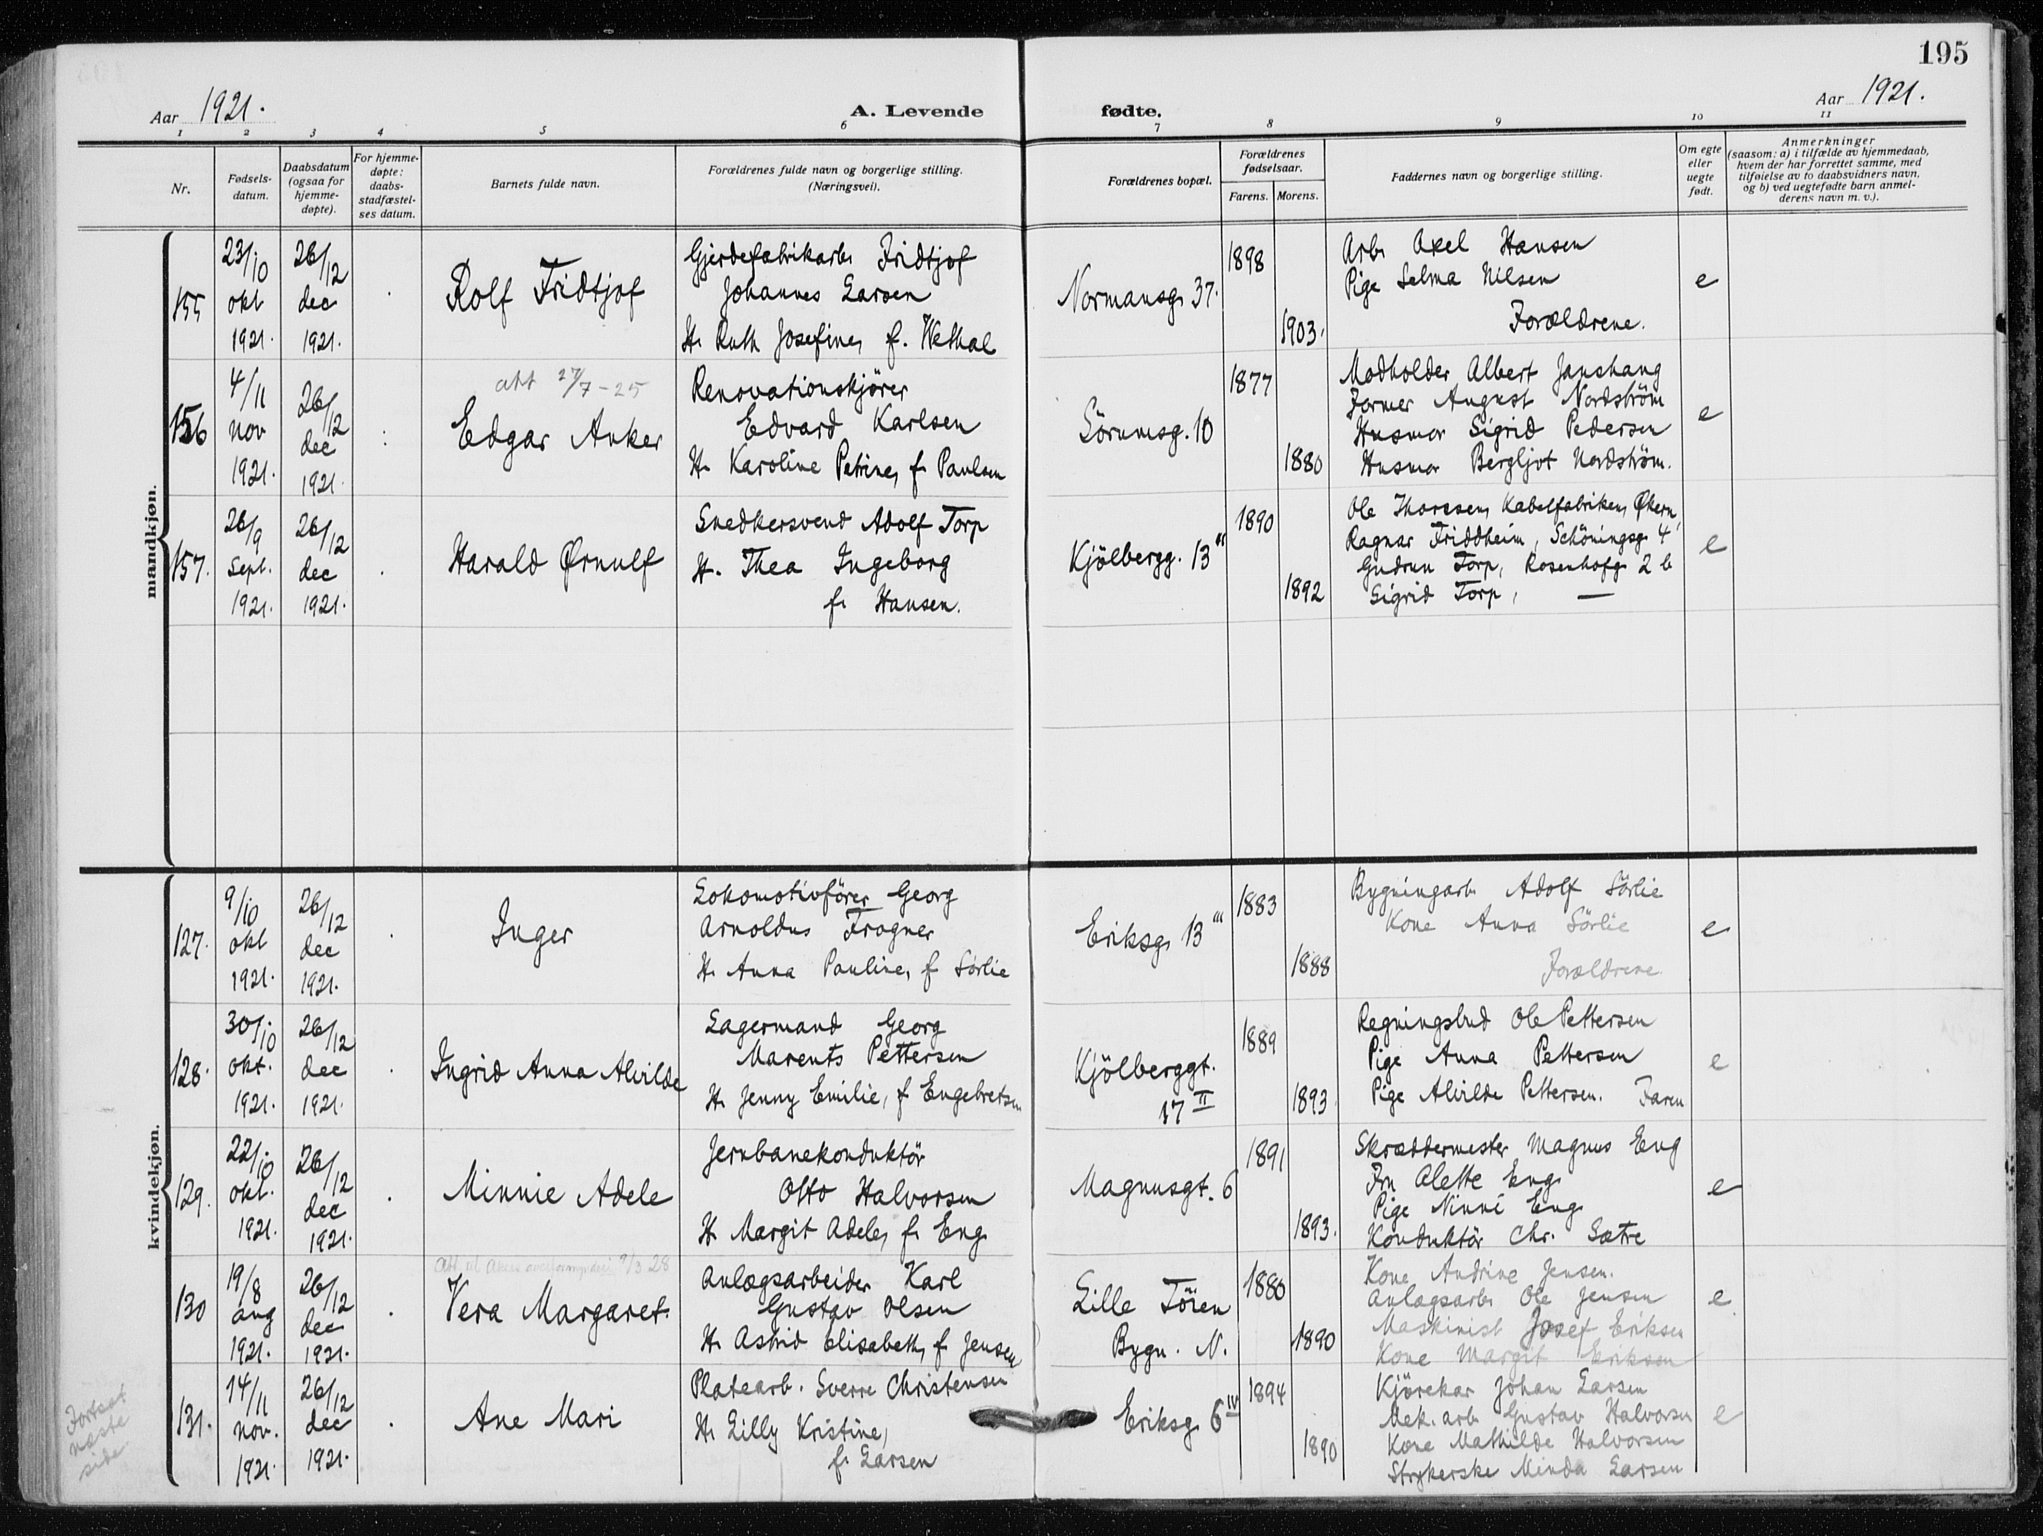 195
Aar 1921.
A. Levende fødte.
Aar 1921.
1 2 3 4 5 6 7 8 9 10 11
Nr.
Fødsels-
datum.
Daabsdatum
(ogsaa for
hjemme-
døpte).
For hjemme-
døpte:
daabs-
stadfæstel-
ses datum.
Barnets fulde navn.
Forældrenes fulde navn og borgerlige stilling.
(Næringsvei).
Forældrenes bopæl.
Forældrenes
fødselsaar.
Farens. Morens.
Faddernes navn og borgerlige stilling.
Om egte
eller
uegte
født.
Anmerkninger
(saasom: a) i tilfælde av hjemmedaab,
hvem der har forrettet samme, med
tilføielse av to daabsvidners navn,
og b) ved uegtefødte barn anmel-
derens navn m. v.).
mandkjøn.
155
23/10
okt
1921.
26/12
dec
1921.
Rolf Fridtjof
Gjerdefabrikarb. Fridtjof
Johannes Larsen
H. Ruth Josefine, f. Wethal
Normansg. 37.
1898
1903.
Arb. Axel Hansen
Pige Selma Nilsen
Forældrene.
e
156
4/11
nov
1921.
26/12
dec
1921.
att 27/7-25
Edgar Anker
Renovationskjører
Edvard Karlsen
H. Karoline Petrine, f. Paulsen
Sörumsg. 10
1877
1880
Modholder Albert Janshang
Former August Nordström
Husmor Sigrid Pedersen
Husmor Bergljot Nordström.
e
157.
26/9
Sept.
1921.
26/12
dec
1921.
Harald Ørnulf
Snedkersvend Adolf Torp
H. Thea Ingeborg
f. Hansen.
Kjölbergg. 13 III
1890
1892
Ole Thorssen, Kabelfabriken, Økern,
Ragnar Friddheim, Schöningsg. 4
Gudrun Torp, Rosenhofg. 2 b
Sigrid Torp, —
e
kvindekjøn.
127.
9/10
okt
1921.
26/12
dec
1921.
Inger
Lokomotivförer Georg
Arnoldus Frogner
H. Anna Pauline, f. Sörlie
Eriksg. 13 III
1883
1888
Bygningarb. Adolf Sörlie
Kone Anna Sörlie
Forældrene
e
128.
30/10
okt.
1921.
26/12
dec
1921.
Ingrid Anna Alvilde
Lagermand Georg
Marents Pettersen
H. Jenny Emilie, f. Engebretsen
Kjölberggt.
17 II
1889
1893
Regningsbud Ole Pettersen
Pige Anna Pettersen
Pige Alvilde Pettersen. Faren
e
129.
22/10
okt.
1921.
26/12
dec
1921.
Minnie Adele
Jernbanekonduktör
Otto Halvorsen
H. Margit Adele, f. Eng.
Magnusgt. 6
1891
1893.
Skræddermester Magnus Eng
Fru Alette Eng.
Pige Ninni Eng.
Konduktör Chr. Sætre
e
130
19/8
aug
1921.
26/12
dec
1921.
Att til Akers overformynderi 9/3 28
Vera Margaret.
Anlægsarbeider Karl
Gustav Olsen
H. Astrid Elisabeth, f. Jensen
Lille Töien
Bygn. N.
1880
1890
Kone Andrine Jensen.
Anlægsarb. Ole Jensen
Maskinist Josef Eriksen
Kone Margit Eriksen
e
131.
14/11
nov.
1921.
26/12
dec
1921.
Ane Mari
Platearb. Sverre Christensen
H. Lilly Kristine,
f. Larsen
Eriksg. 6 IV
1894
1890
Kjörekar Johan Larsen
Mek. arb. Gustav Halvorsen
Kone Mathilde Halvorsen
Strykerske Minda Larsen
e
Fortsat
næste
side